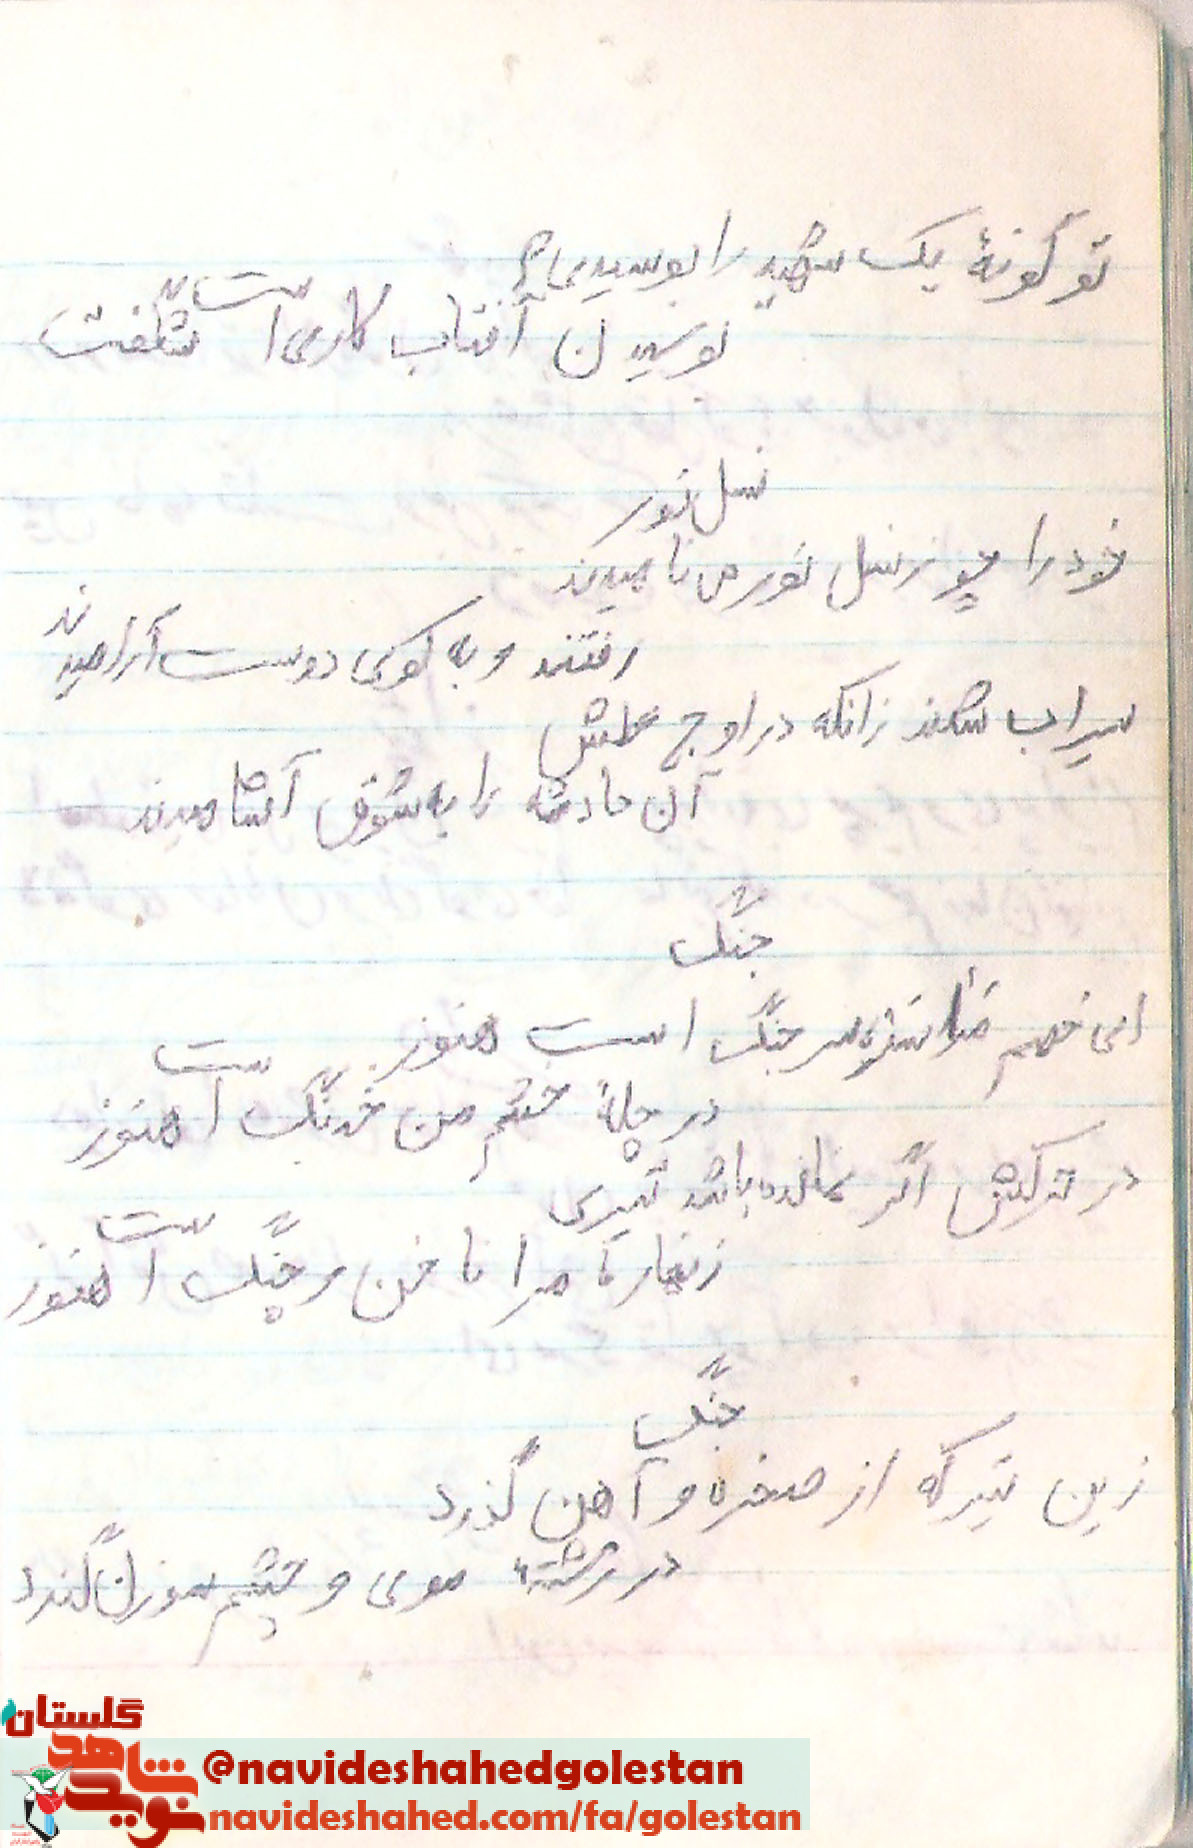 تو گونهٔ یک شهید را بوسیدی؟
بوسیدن آفتاب کاری است شگفت
نسل نور
خود را چو ز نسل نور می نامیدند
رفتند و به کوی دوست آرامیدند
سیراب شدند زانکه در اوج عطش
آن حادثه را به شوق آشامیدند
جنگ
ای خصم سر جنگ است هنوز
در چلهٔ خشم من خدنگ است هنوز
در ترکش اگر نمانده باشد تیری
زنهار تا مرا ناخن و چنگ است هنوز
جنگ
زین تیر که از صخره و آهن گذرد
در رشتهٔ موی و چشم سوزن گذرد
گلستان
نوید شاهد
@navideshahedgolestan
navideshahed.com/fa/golestan